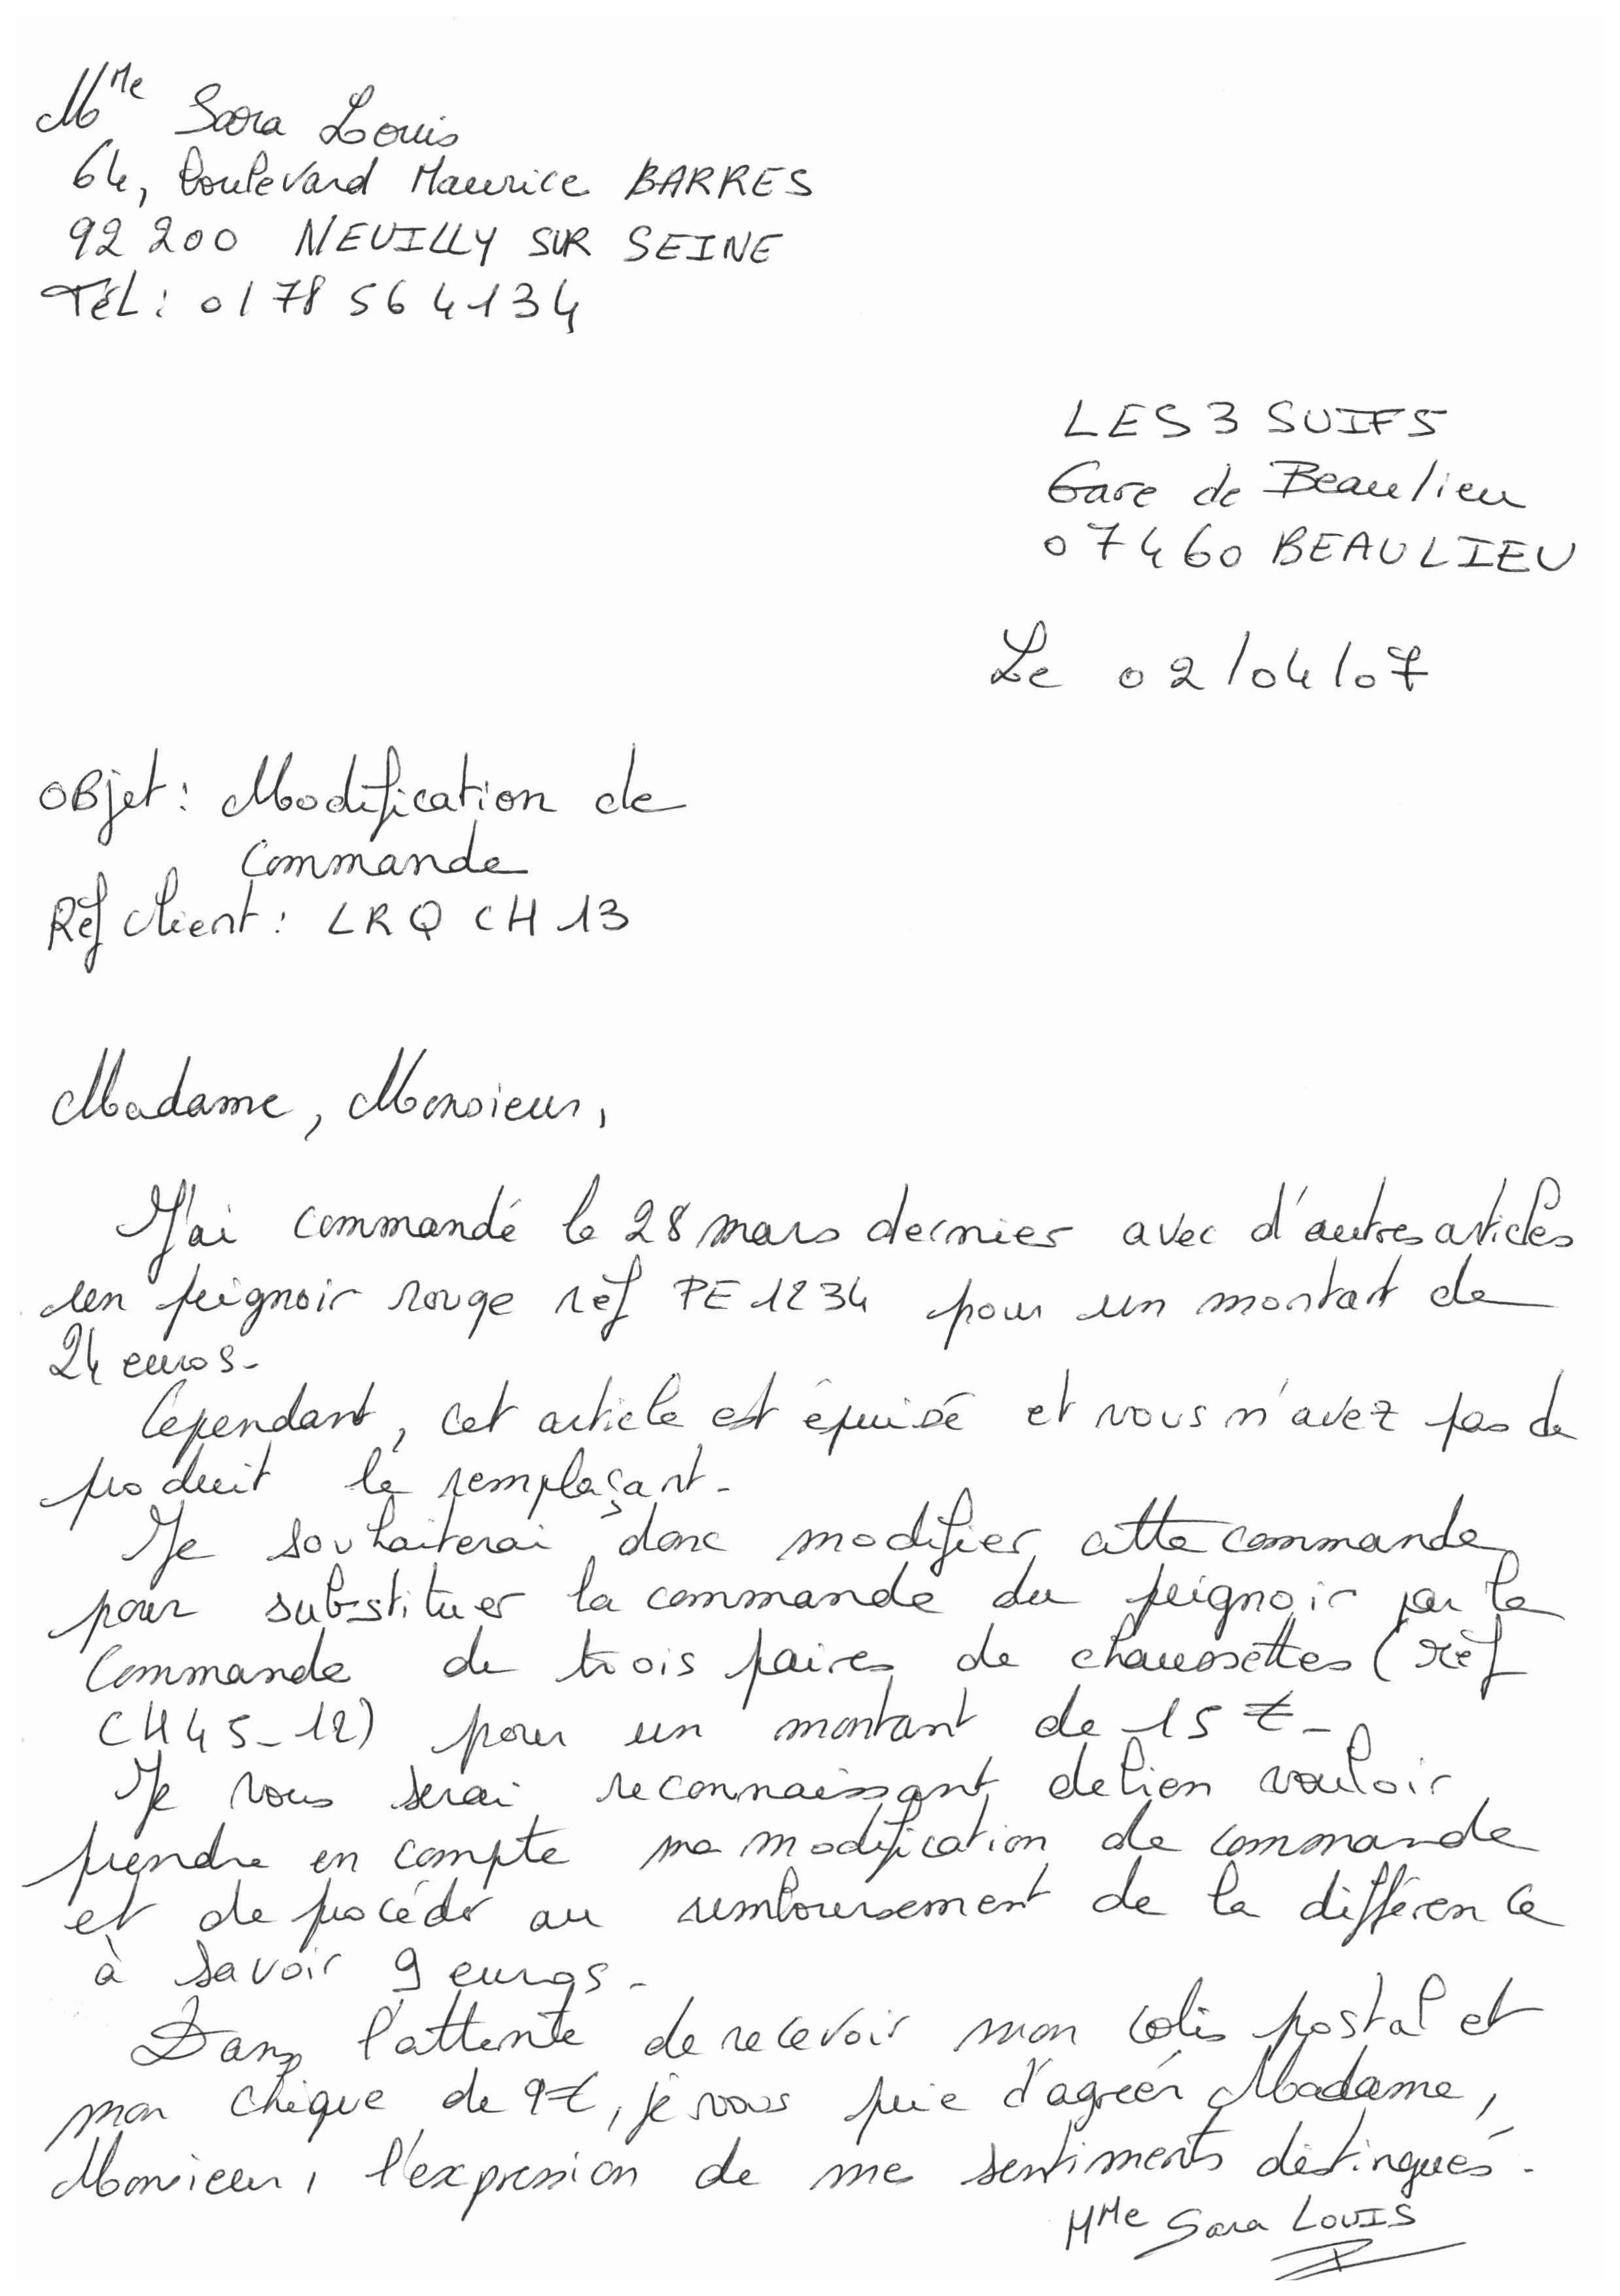 Mme Sara Louis
64, boulevard Maurice BARRES
92 200 NEUILLY SUR SEINE
TéL : 01 78 56 41 34
LES 3 SUIFS
Gare de Beaulieu
07460 BEAULIEU
Le 02/04/07
OBjet : Modification de
Commande
Réf client : LRQ CH 13
Madame, Monsieur,
J'ai commandé le 28 mars dernier avec d'autres articles
un peignoir rouge réf PE 1234 pour un montant de
24 euros-
Cependant, cet article est épuisé et vous n'avez pas de
produit le remplaçant-
Je souhaiterai donc modifier cette commande
pour substituer la commande du peignoir par la
commande de trois paires de chaussettes (réf
CH45-12) pour un montant de 15 €-
Je vous serai reconnaissant de bien vouloir
prendre en compte ma modification de commande
et de procéder au remboursement de la différence
à savoir 9 euros-
Dans l'attente de recevoir mon colis postal et
mon chèque de 9€, je vous prie d'agréér Madame,
Monsieur, l'expression de mes sentiments distingués.
MMe Sara LOUIS